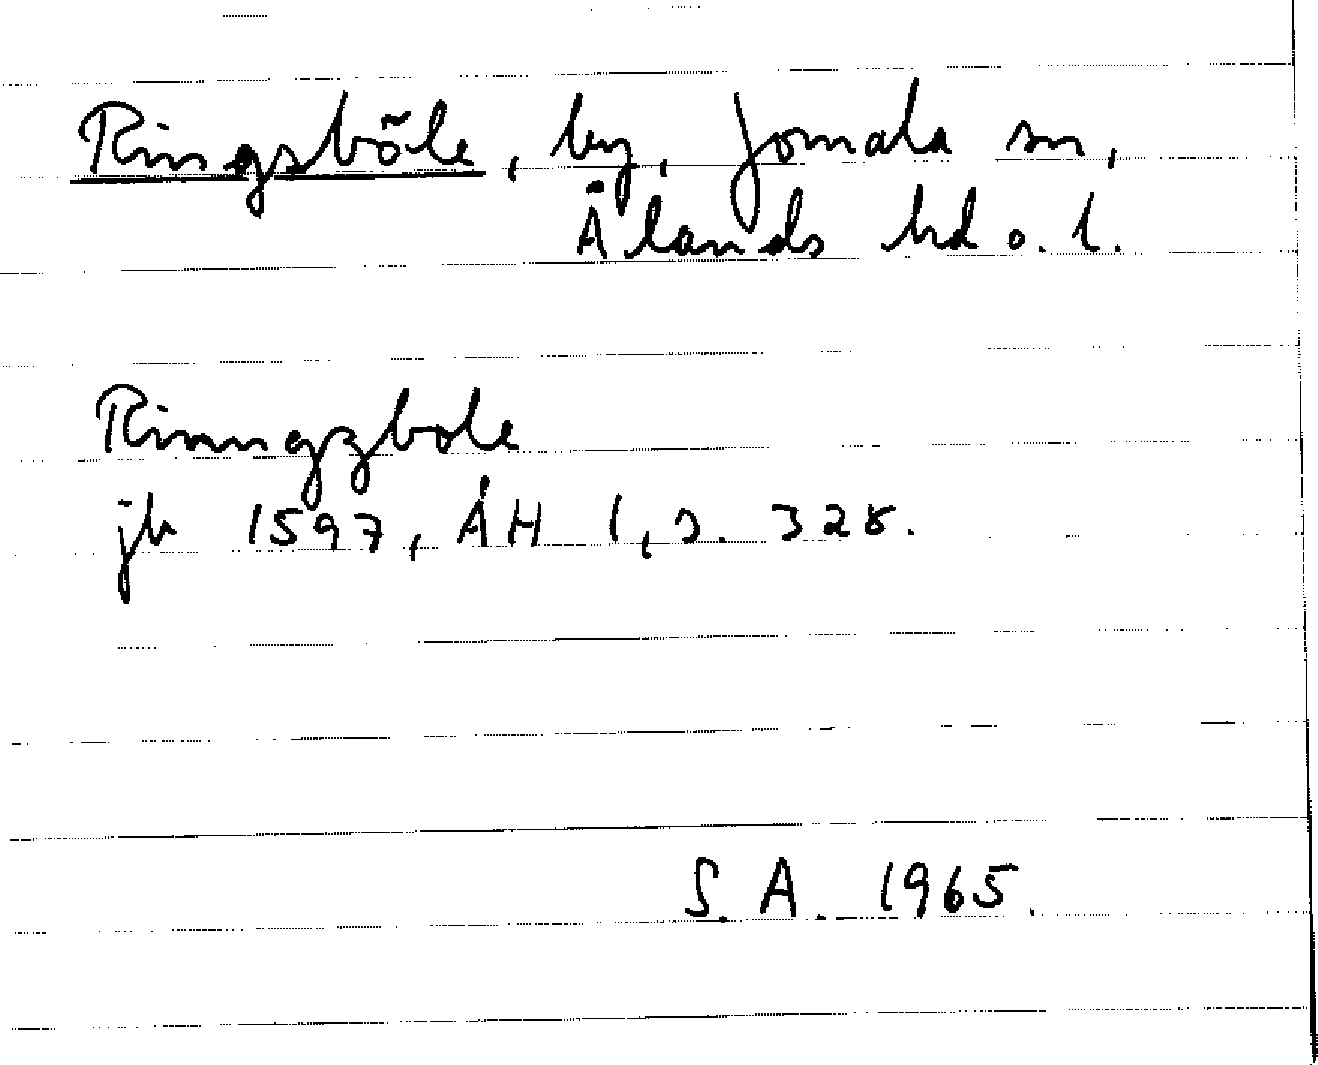 Ringsböle, by, Jomala sn,
Ålands hd o. l.
Rinngzbole
jb 1597, ÅH 1, s. 328.
S. A. 1965.